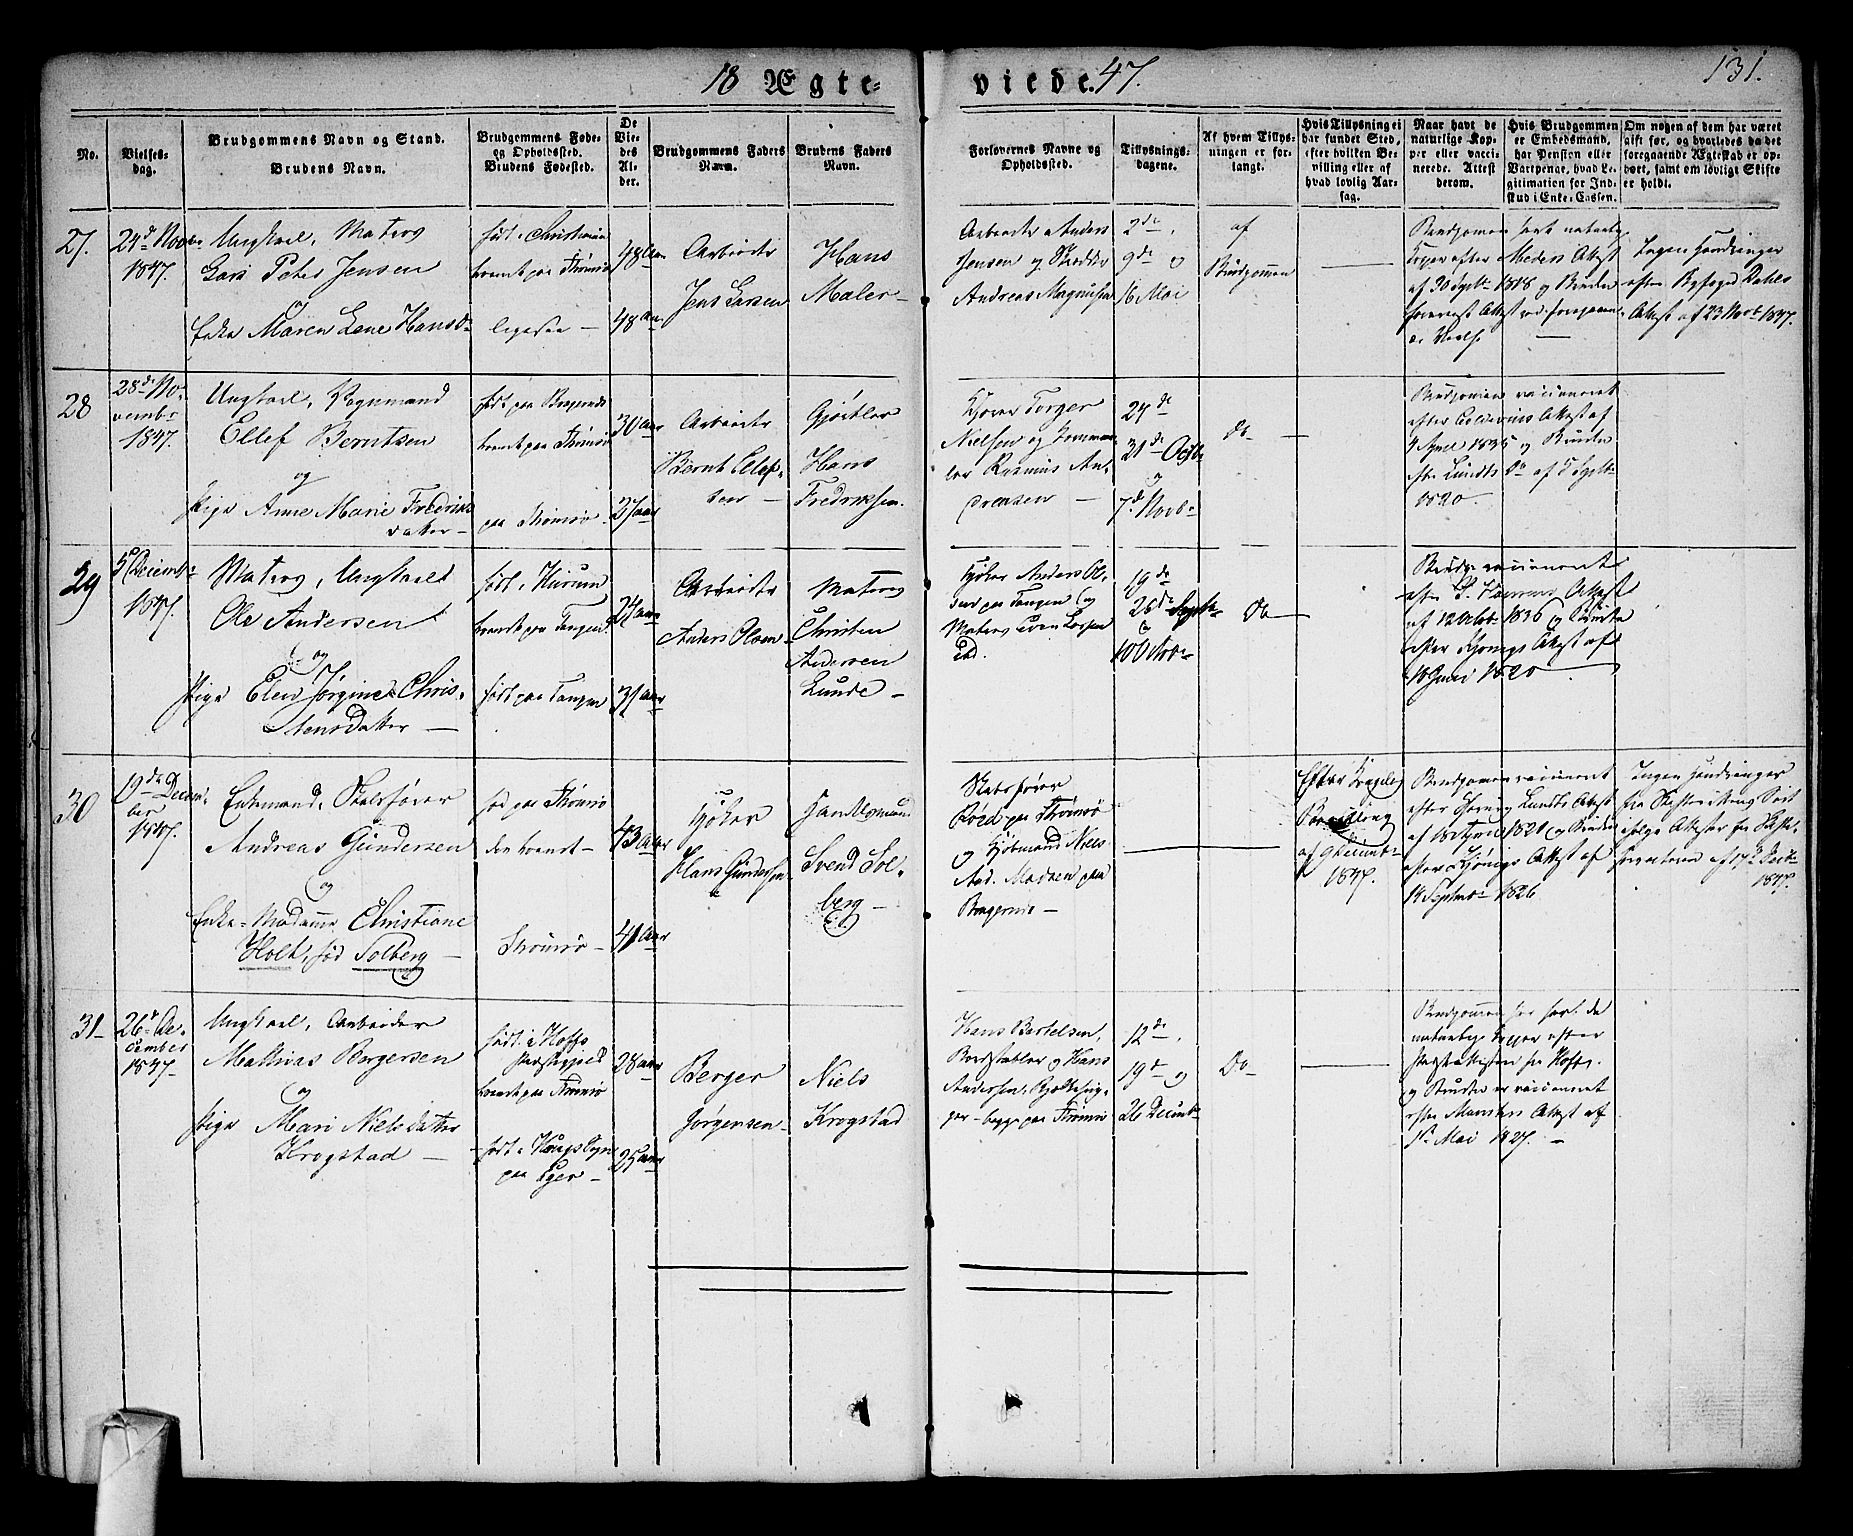 18 Ægte-
viede. 47.
131.
No.
Vielses-
dag.
Brudgommens Navn og Stand.
Brudens Navn.
Brudgommens Føde-
og Opholdssted.
Brudens Fødested.
De
Vie-
des
Al-
der.
Brudgommens Faders
Navn.
Brudens Faders
Navn.
Forlovernes Navne og
Opholdssted.
Tillysnings-
dagene.
Af hvem Tillys-
ningen er for-
langt.
Hvis Tillysning ei
har fundet Sted,
efter hvilken Be-
villing eller af
hvad lovlig Aar-
sag.
Naar havt de
naturlige Kop-
per eller vacci-
nerede. Attest
derom.
Hvis Brudgommen
er Embedsmand,
har Pension eller
Vartpenge, hvad Le-
gitimation for Ind-
skud i Enke-Cassen.
Om nogen af dem har været
gift før, og hvorledes da det
foregaaende Ægteskab er op-
hørt, samt om lovligt Skifte
er holdt.
27.
24d Novbr
1847.
Ungkarl, Matros
Lars Peter Jensen
og
Enke Maren Lene Hansd-
født i Christiania
boende paa Strømsø
ligesaa -
48 Aar
48 Aar
Arbeider
Jens Larsen
Hans
Maler -
Arbeider Anders
Jensen og Skredder
Andreas Magnussen
2de,
9de og
16 Mai
af
Brudgommen
Brudgommen havt naturlige
Kopper efter Meders Attest
af 30 Septbr 1818 og Bruden
Ingen Hindringer
efter Byfoged
Attest af 23 Novbr 1847.
28
28de No-
vember
1847.
Ungkarl, Vognmand
Ellef Berntsen
og
Pige Anne Marie Fredriks-
datter -
født paa Bragernes
boende paa Strømsø
paa Strømsø -
30 aar
27 aar
Arbeider
Bernt Ellef-
sen -
Gjørtler
Hans
Fredriksen.
Kjører Torger
Nielsen og
Rasmus An-
dreasen -
24de
31de Octbr
og
7de Novbr
Do -
Brudgommen vaccineret
efter Attest af
1835 og Bruden
efter Lundts Do af Septbr
1820.
29
5te Decembr
1847.
Matros, Ungkarl
Ole Andersen
og
Pige Elen Jørgine Chris-
tensdatter -
født i Hurum
boende paa Tangen
født paa Tangen
24 aar
31 aar
Arbeider
Anders Olsen
Matros
Christen
Andersen
Lunde -
Kjøker Anders Ol-
sen paa Tangen og
Matros Even Larsen
ibd.
19de
26de Septbr
og
10 Novbr
Do -
Brudg. vaccineret
efter Attest
af 12 Octbr 1836 og Bruden
efter Kjønigs Attest af
18 Juni 1820
30
19de Decem-
ber
1847.
Enkemand,
Andreas Gundersen
og
Enke-Madame Christiane
Holt, fød Solberg -
fød paa Strømsø
der boende -
Strømsø -
43 Aar
41 Aar
Kjøker
Hans Gundersen
Svend Sol-
berg -
Røed paa Strømsø
og Kjøbmand Niels
And. Madsen paa
Bragernes -
Efter Kongelig
Bevilling
af 9 Decembr
1847.
Brudgommen vaccineret
efter Lundts Attest
af 18 April 1820 og Bruden
efter Kjønigs Attest af
14 Septmbr 1826
Ingen Hindringer
fra Skifterettens Side
ifølge Attester fra Skifte-
forvalteren af 17de Decbr
1847.
31-
26de De-
cember
1847.
Ungkarl, Arbeider
Mathias Bergersen
og
Pige Mari Nielsdatter
Krogstad -
født i Hoffs
Præstegjeld
boende paa Strømsø
født i Hougs Sogn
paa Eger -
28 aar
25 aar
Berger
Jørgensen -
Niels
Krogstad
Hans Bertelsen,
og Hans
Andersen,
- begge paa Strømsø
12de,
19de og
26 Decmbr
Do -
Brudgommen har havt de
naturlige Kopper efter
Præsteattesten fra Hoff,
og Bruden er vaccineret
efter Attest af
Mai 1827. -